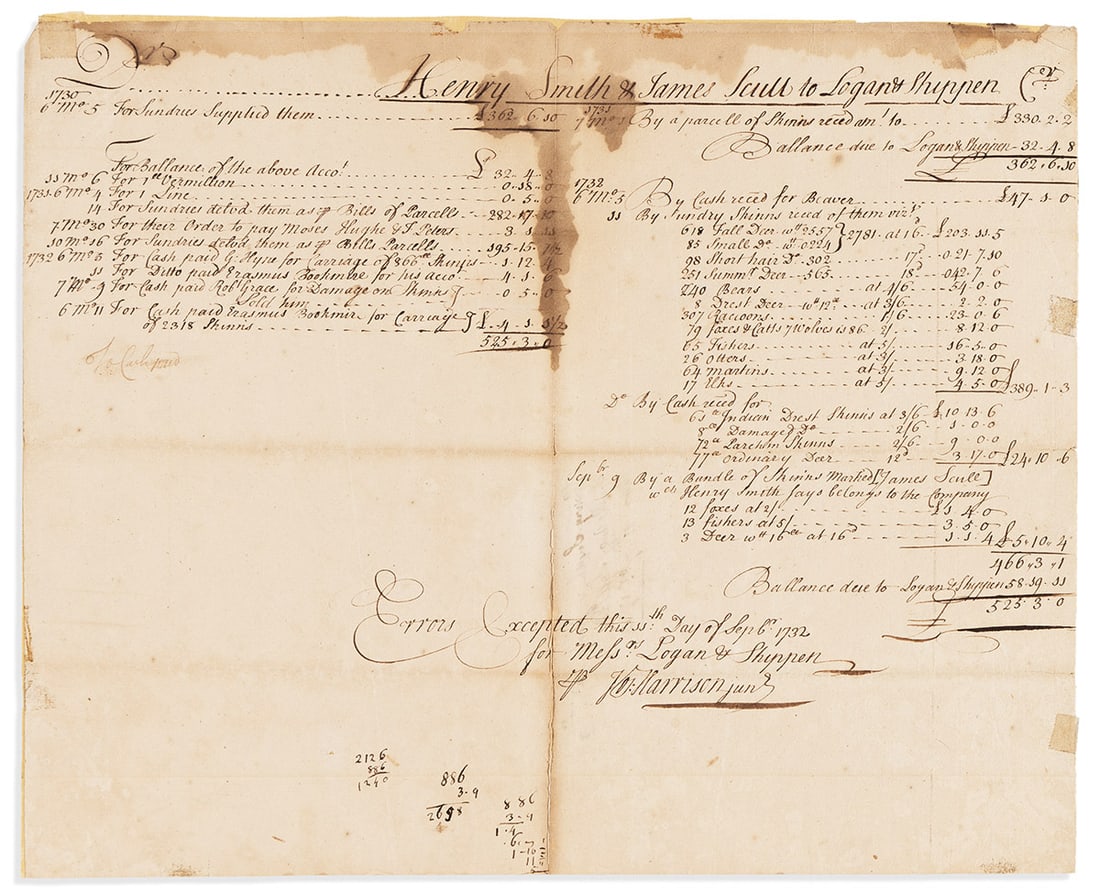 Dr
Henry Smith & James Scull to Logan & Shippen Cr
1730
6 Mo 5 For Sundries Supplied them £362-6-10
For Ballance of the above Acco! £32-4-8
11 Mo 6 For 1 Vermillion 0-18-0
1731-6 Mo 4 For 1 Line 0-5-0
14 For Sundries delvd them as ⅌ Bills of Parcells 282-17-10
7 Mo 30 For their Order to pay Moses Hughe & T. Peters 3-1-11
10 Mo 16 For Sundries delvd them as ⅌ Bills Parcells 195-15-
1732 6 Mo 5 For Cash paid G. Hyne for Carriage of 866 Skinns 1-12-4
11 For Ditto paid Erasmus Bookmire for his Acco! 4-1-6
7 Mo 9 For Cash paid Robt Grace for Damage on Skinns } 0-5-0
Sold him
6 Mo 11 For Cash paid Erasmus Bookmire for Carriage } £4-1-
of 2318 Skinns
525-3-0
1731
7 Mo By a parcell of Skinns reced amt to £330-2-2
Ballance due to Logan & Shippen 32-4-8
£362-6-10
1732
6 Mo 5 By Cash reced for Beaver £47-1-0
11 By Sundry Skinns reced of them vizt
618 Fall Deer wt 2557 } 2781 at 16d £203-11-5
85 Small Do wt 0224
98 Short hair Do 302 17d 021-7-10
251 Summr Deer 565 18d 042-7-6
240 Bears at 4/6 54-0-0
8 Drest Deer wt 12 at 3/6 2-2-0
307 Racoons 1/6 23-0-6
79 foxes & Catts 7 Wolves is 86 2/ 8-12-0
65 Fishers at 5/ 16-5-0
26 Otters at 3/ 3-18-0
64 martins at 3/ 9-12-0
17 Elks at 5/ 4-5-0 £389-1-3
Do By Cash reced for
61 Indian Drest Skinns at 3/6 £10-13-6
8 Damaged Do 2/6 1-0-0
72 Parchm Skinns 2/6 9-0-0
77 ordinary Deer 12d 3-17-0 £24-10-6
Sepbr 9 By a Bundle of Skinns Marked [James Scull]
wch Henry Smith says belongs to the Company
12 foxes at 2/ £1-4-0
13 fishers at 5/ 3-5-0
3 Deer wt 16 at 16d 1-1-4 £5-10-4
466-3-1
Ballance due to Logan & Shippen 58-19-11
£525-3-0
Errors Excepted this 11th Day of Sepbr 1732
for Messrs Logan & Shippen
⅌ Harrison junr
2126
886
1240
886
3-9
2698
886
3-9
1-4
6-
1-10
11